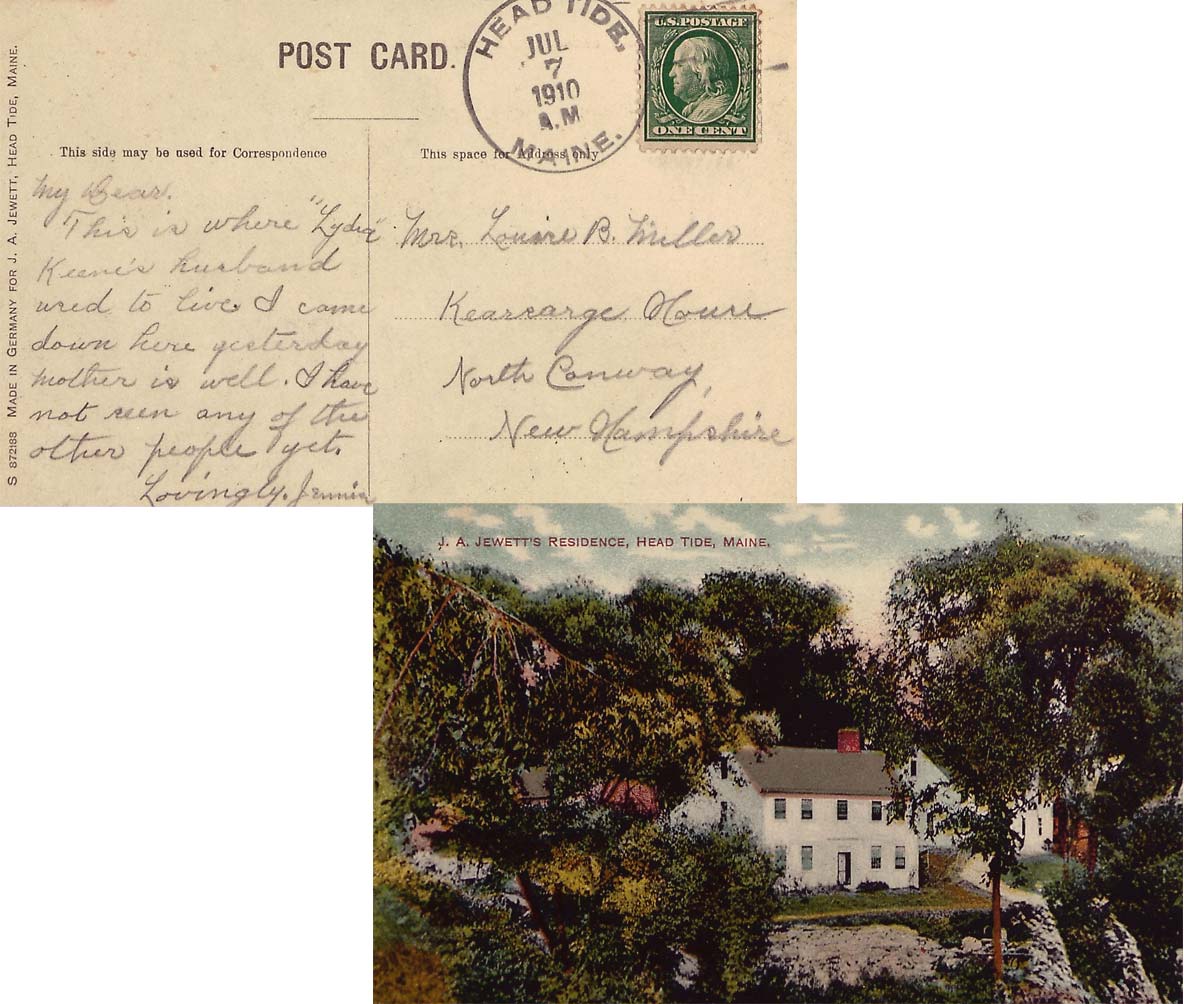 POST CARD.
HEAD TIDE,
JUL
7
1910
A.M
MAINE.
U.S. POSTAGE
ONE CENT
S 872188 MADE IN GERMANY FOR J. A. JEWETT, HEAD TIDE, MAINE.
This side may be used for Correspondence
This space for Address only
My Dear.
This is where "Lydia"
Keene's husband
used to live. I came
down here yesterday
mother is well. I have
not seen any of the
other people yet.
Lovingly. Jennie
Mrs. Louise B. Miller
Kearsarge House
North Conway,
New Hampshire
J. A. JEWETT'S RESIDENCE, HEAD TIDE, MAINE.